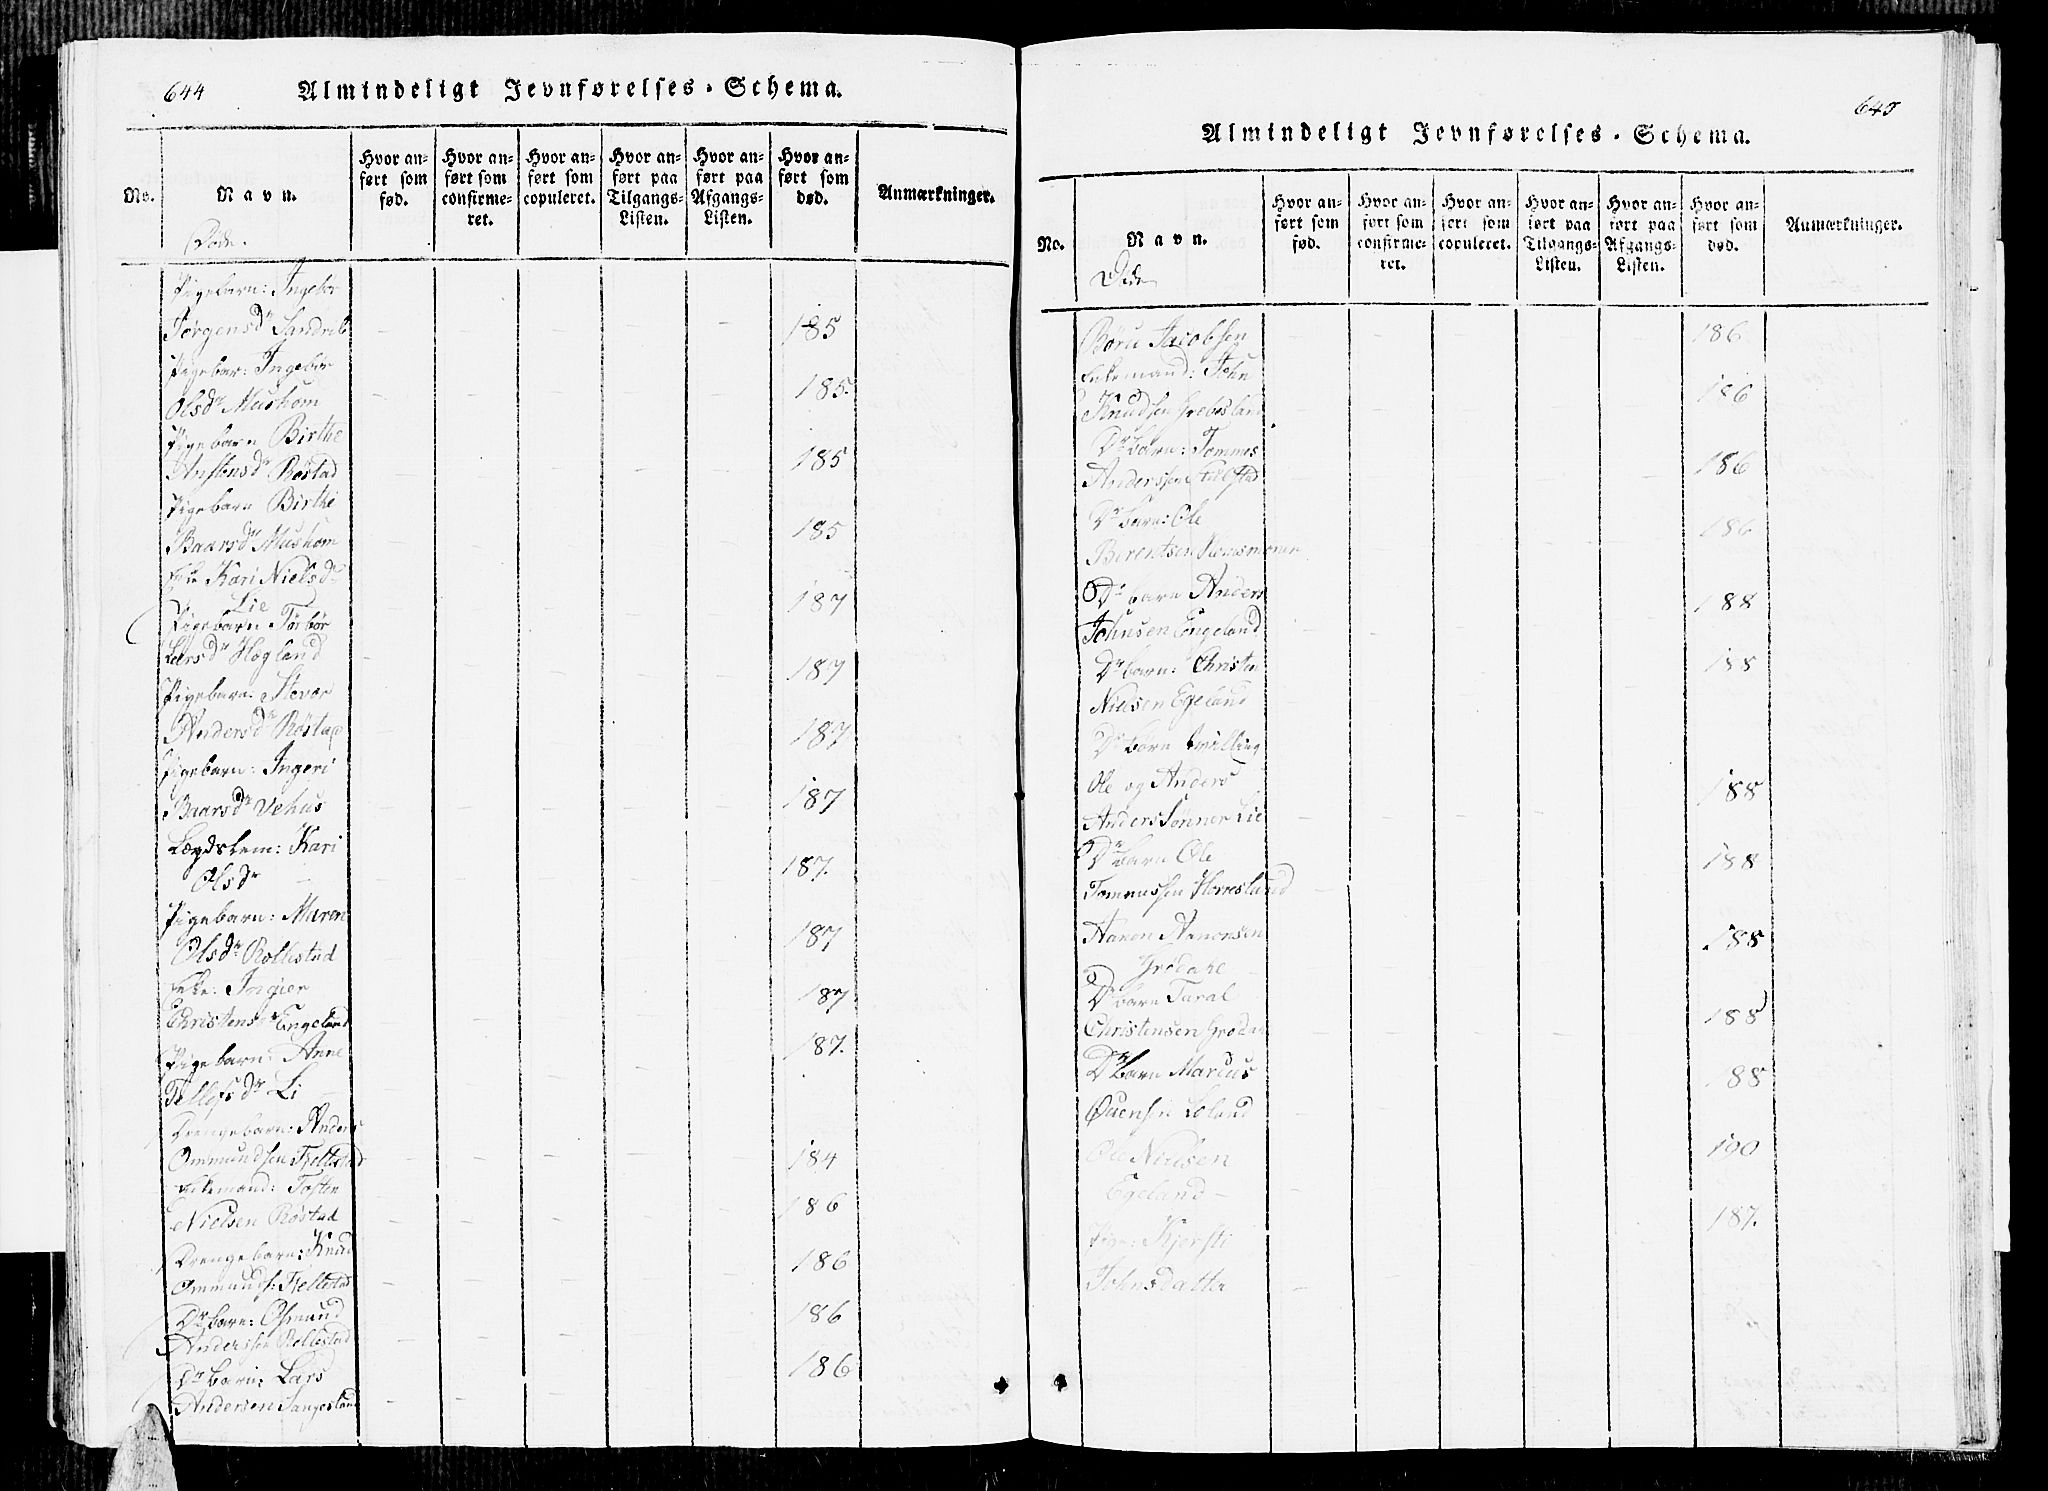 644
Almindeligt Jevnførelses-Schema.
No.
Navn.
Hvor an-
ført som
fød.
Hvor an-
ført som
confirme-
ret.
Hvor an-
ført som
copuleret.
Hvor an-
ført paa
Tilgangs-
Listen.
Hvor an-
ført paa
Afgangs-
Listen.
Hvor an-
ført som
død.
Anmærkninger.
Døde.
Pigebarn: Ingebor
Jørgensdr 185
Pigebar: Ingebor
Olsdr 185.
Pigebarn Birthe
Røstad 185
Pigebarn Birthe
Baarsdr 185
Kari Nielsdr
Lie 187
Pigebarn Torbor
Larsdr Hogland 187
Pigebarn:
Andersdr Røstad 187
Pigebarn: Ingeri
Baarsdr Vehus 187
Lægdslem: Kari
Olsdr 187.
Pigebarn: Maren
Olsdr Rollestad 187
Enke: 187
Christensdr Engeland
Pigebarn: Anne 187.
Tellefsdr Li
Drengebarn: Anders
Ommundsen 184
Enkemand: Tosten
Nielsen Røstad 186
Drengebarn: Knud
Ommunds: 186
Dr barn: Osmund
Anderssen Rollestad 186
Dr barn: Lars
Andersen 186
645
Almindeligt Jevnførelses-Schema.
No.
Navn.
Hvor an-
ført som
fød.
Hvor an-
ført som
confirme-
ret.
Hvor an-
ført som
copuleret.
Hvor an-
ført paa
Tilgangs-
Listen.
Hvor an-
ført paa
Afgangs-
Listen.
Hvor an-
ført som
død.
Anmærkninger.
Døde
Jacobsen 186
Enkemand: John
Knudsen 186
Dr barn: Tommes
Anderssen 186
Dr barn: Ole
Berentsen 186
Dr barn Anders
Johnsen Engeland 188
Dr barn: Christen
Nielsen Egeland 188
Dr børn tvilling
Ole og Anders
Anders Sønner Lie 188
Dr barn Ole
Tommessen 188
Aanen Aanonsen
188
Dr barn Taral
Christensen 188
Dr barn Marcus
Løland 188
Ole Nielsen
Egeland 190
Pige: Kjersti
Johnsdatter 187.